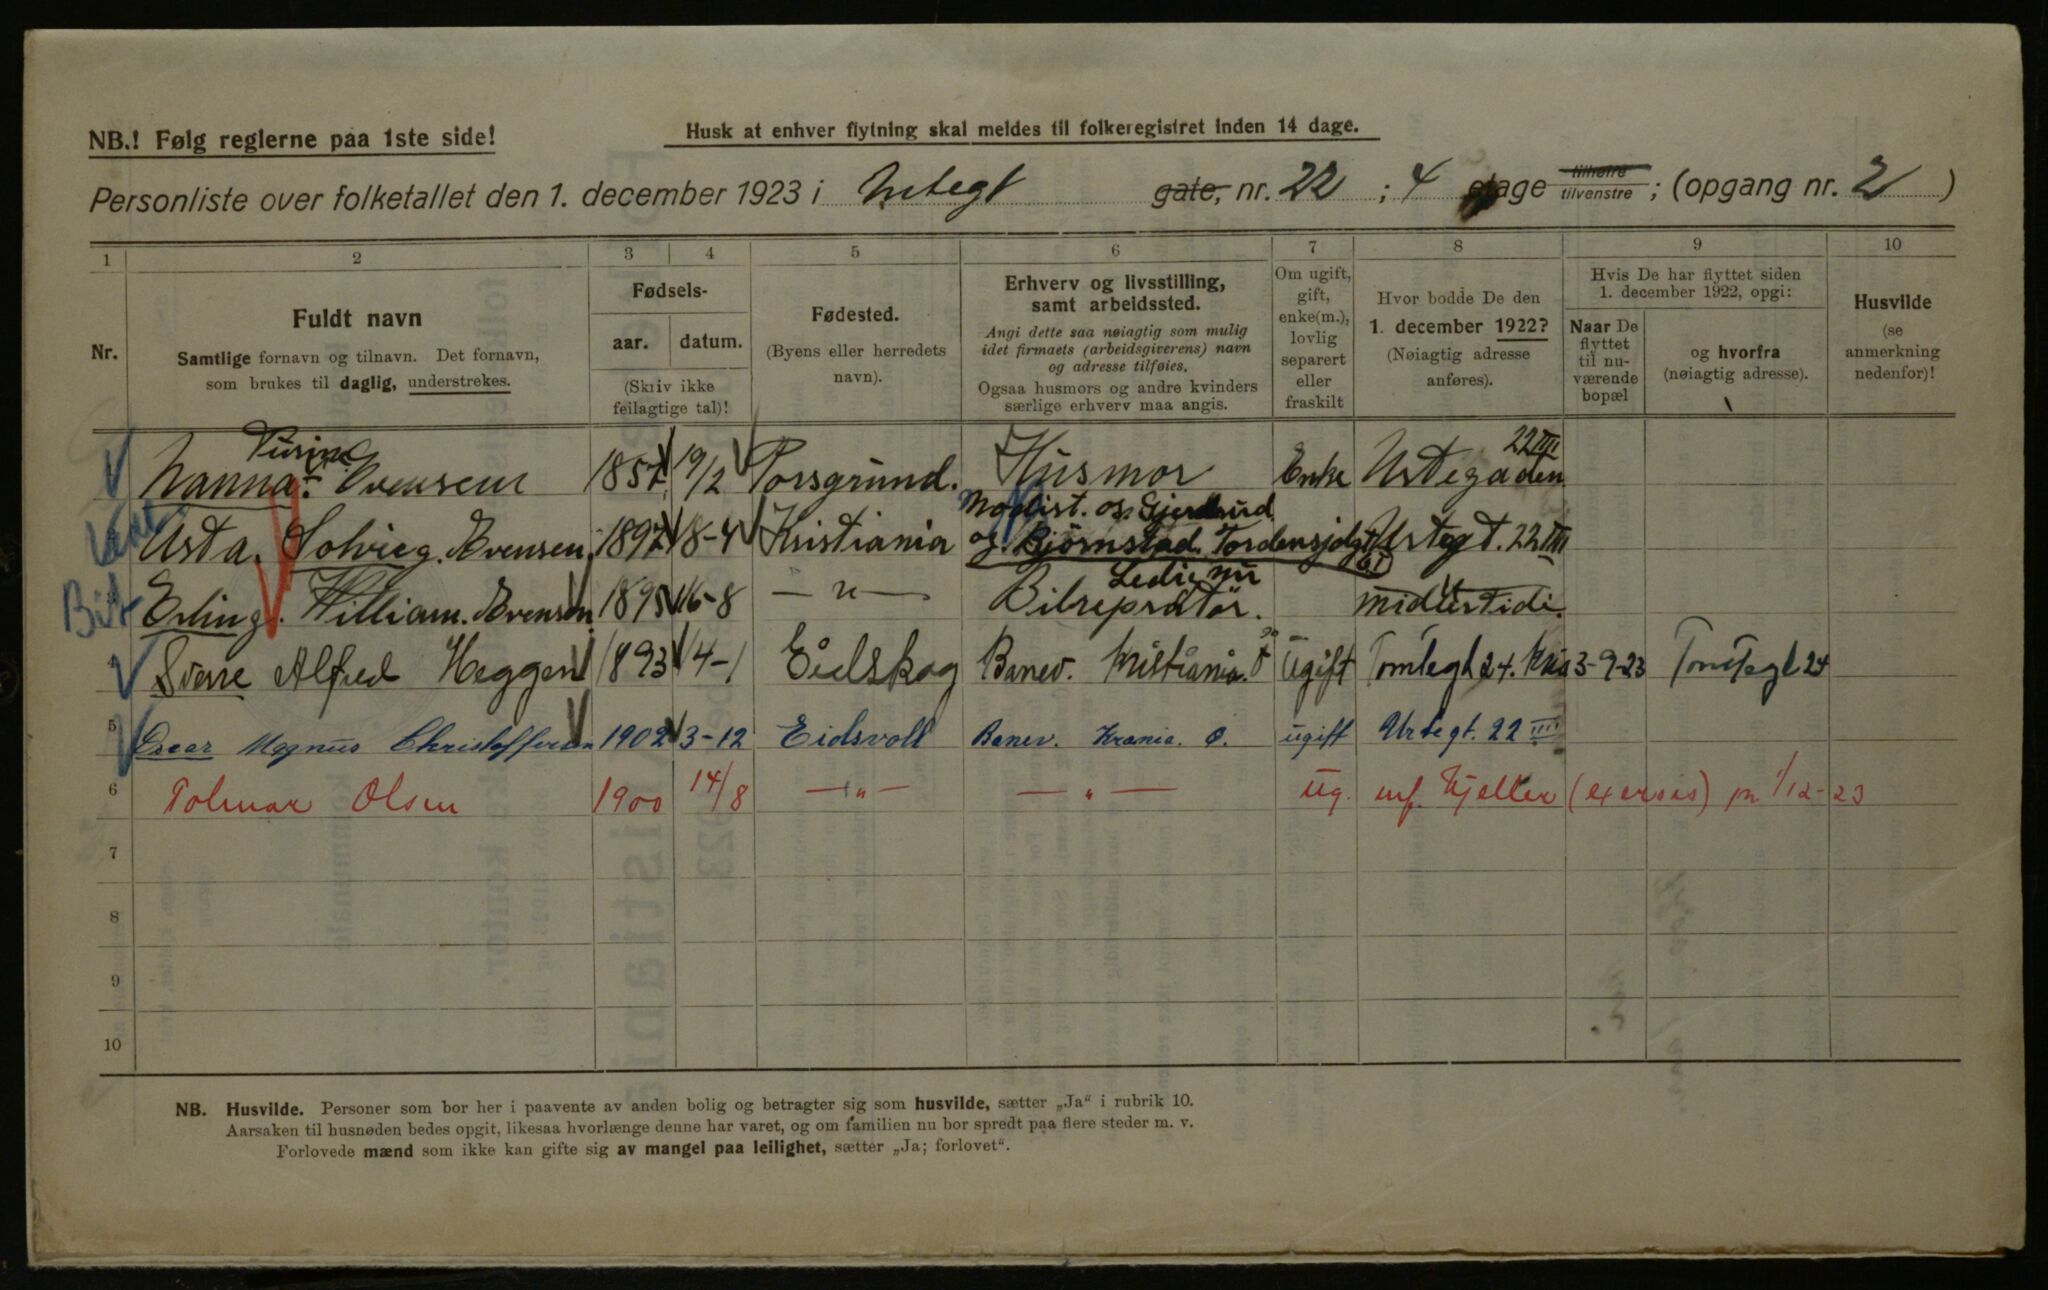 NB.! Følg reglerne paa 1ste side!
Husk at enhver flytning skal meldes til folkeregistret inden 14 dage.
Personliste over folketallet den 1. december 1923 i Urtegt gate, nr. 22 ; 4 etage tilhøire tilvenstre ; (opgang nr. 2 )
1 2 3 4 5 6 7 8 9 10
Nr.
Fuldt navn
Samtlige fornavn og tilnavn. Det fornavn,
som brukes til daglig, understrekes.
Fødsels-
aar. datum.
(Skriv ikke
feilagtige tal)!
Fødested.
(Byens eller herredets
navn).
Erhverv og livsstilling,
samt arbeidssted.
Angi dette saa nøiagtig som mulig
idet firmaets (arbeidsgiverens) navn
og adresse tilføies.
Ogsaa husmors og andre kvinders
særlige erhverv maa angis.
Om ugift,
gift,
enke(m.),
lovlig
separert
eller
fraskilt
Hvor bodde De den
1. december 1922?
(Nøiagtig adresse
anføres).
Hvis De har flyttet siden
1. december 1922, opgi:
Naar De
flyttet
til nu-
værende
bopæl
og hvorfra
(nøiagtig adresse).
Husvilde
(se
anmerkning
nedenfor)!
Nanna Evensen 1857 19/2 Porsgrund. Husmor Enke Urtegaden 22 III
Modist. os. Gjerdrud
Asta. Solveig. Evensen. 1897 8-4 Kristiania og. Bjørnstad. Tordensjolgt Urtegt. 22 III
Ledig nu
Erling. William. Evensen. 1895 16-8 — " — Bilrepratør. midlertidi.
4 Sverre Alfred Heggen 1893 4-1 Eidskog Banev. Kristiania. Ø Ugift Tomtegt 24. Kria 3-9-23 Tomtegt 24
5 Oscar Magnus Christoffersen 1902 3-12 Eidsvoll Banev. Krania. Ø. ugift Urtegt. 22 III
6 Tolmar Olsen 1900 14/8 — " — — " — ug. Kjeller (exersis) pr. 1/12-23
7
8
9
10
NB. Husvilde. Personer som bor her i paavente av anden bolig og betragter sig som husvilde, sætter „Ja“ i rubrik 10.
Aarsaken til husnøden bedes opgit, likesaa hvorlænge denne har varet, og om familien nu bor spredt paa flere steder m. v.
Forlovede mænd som ikke kan gifte sig av mangel paa leilighet, sætter „Ja; forlovet“.